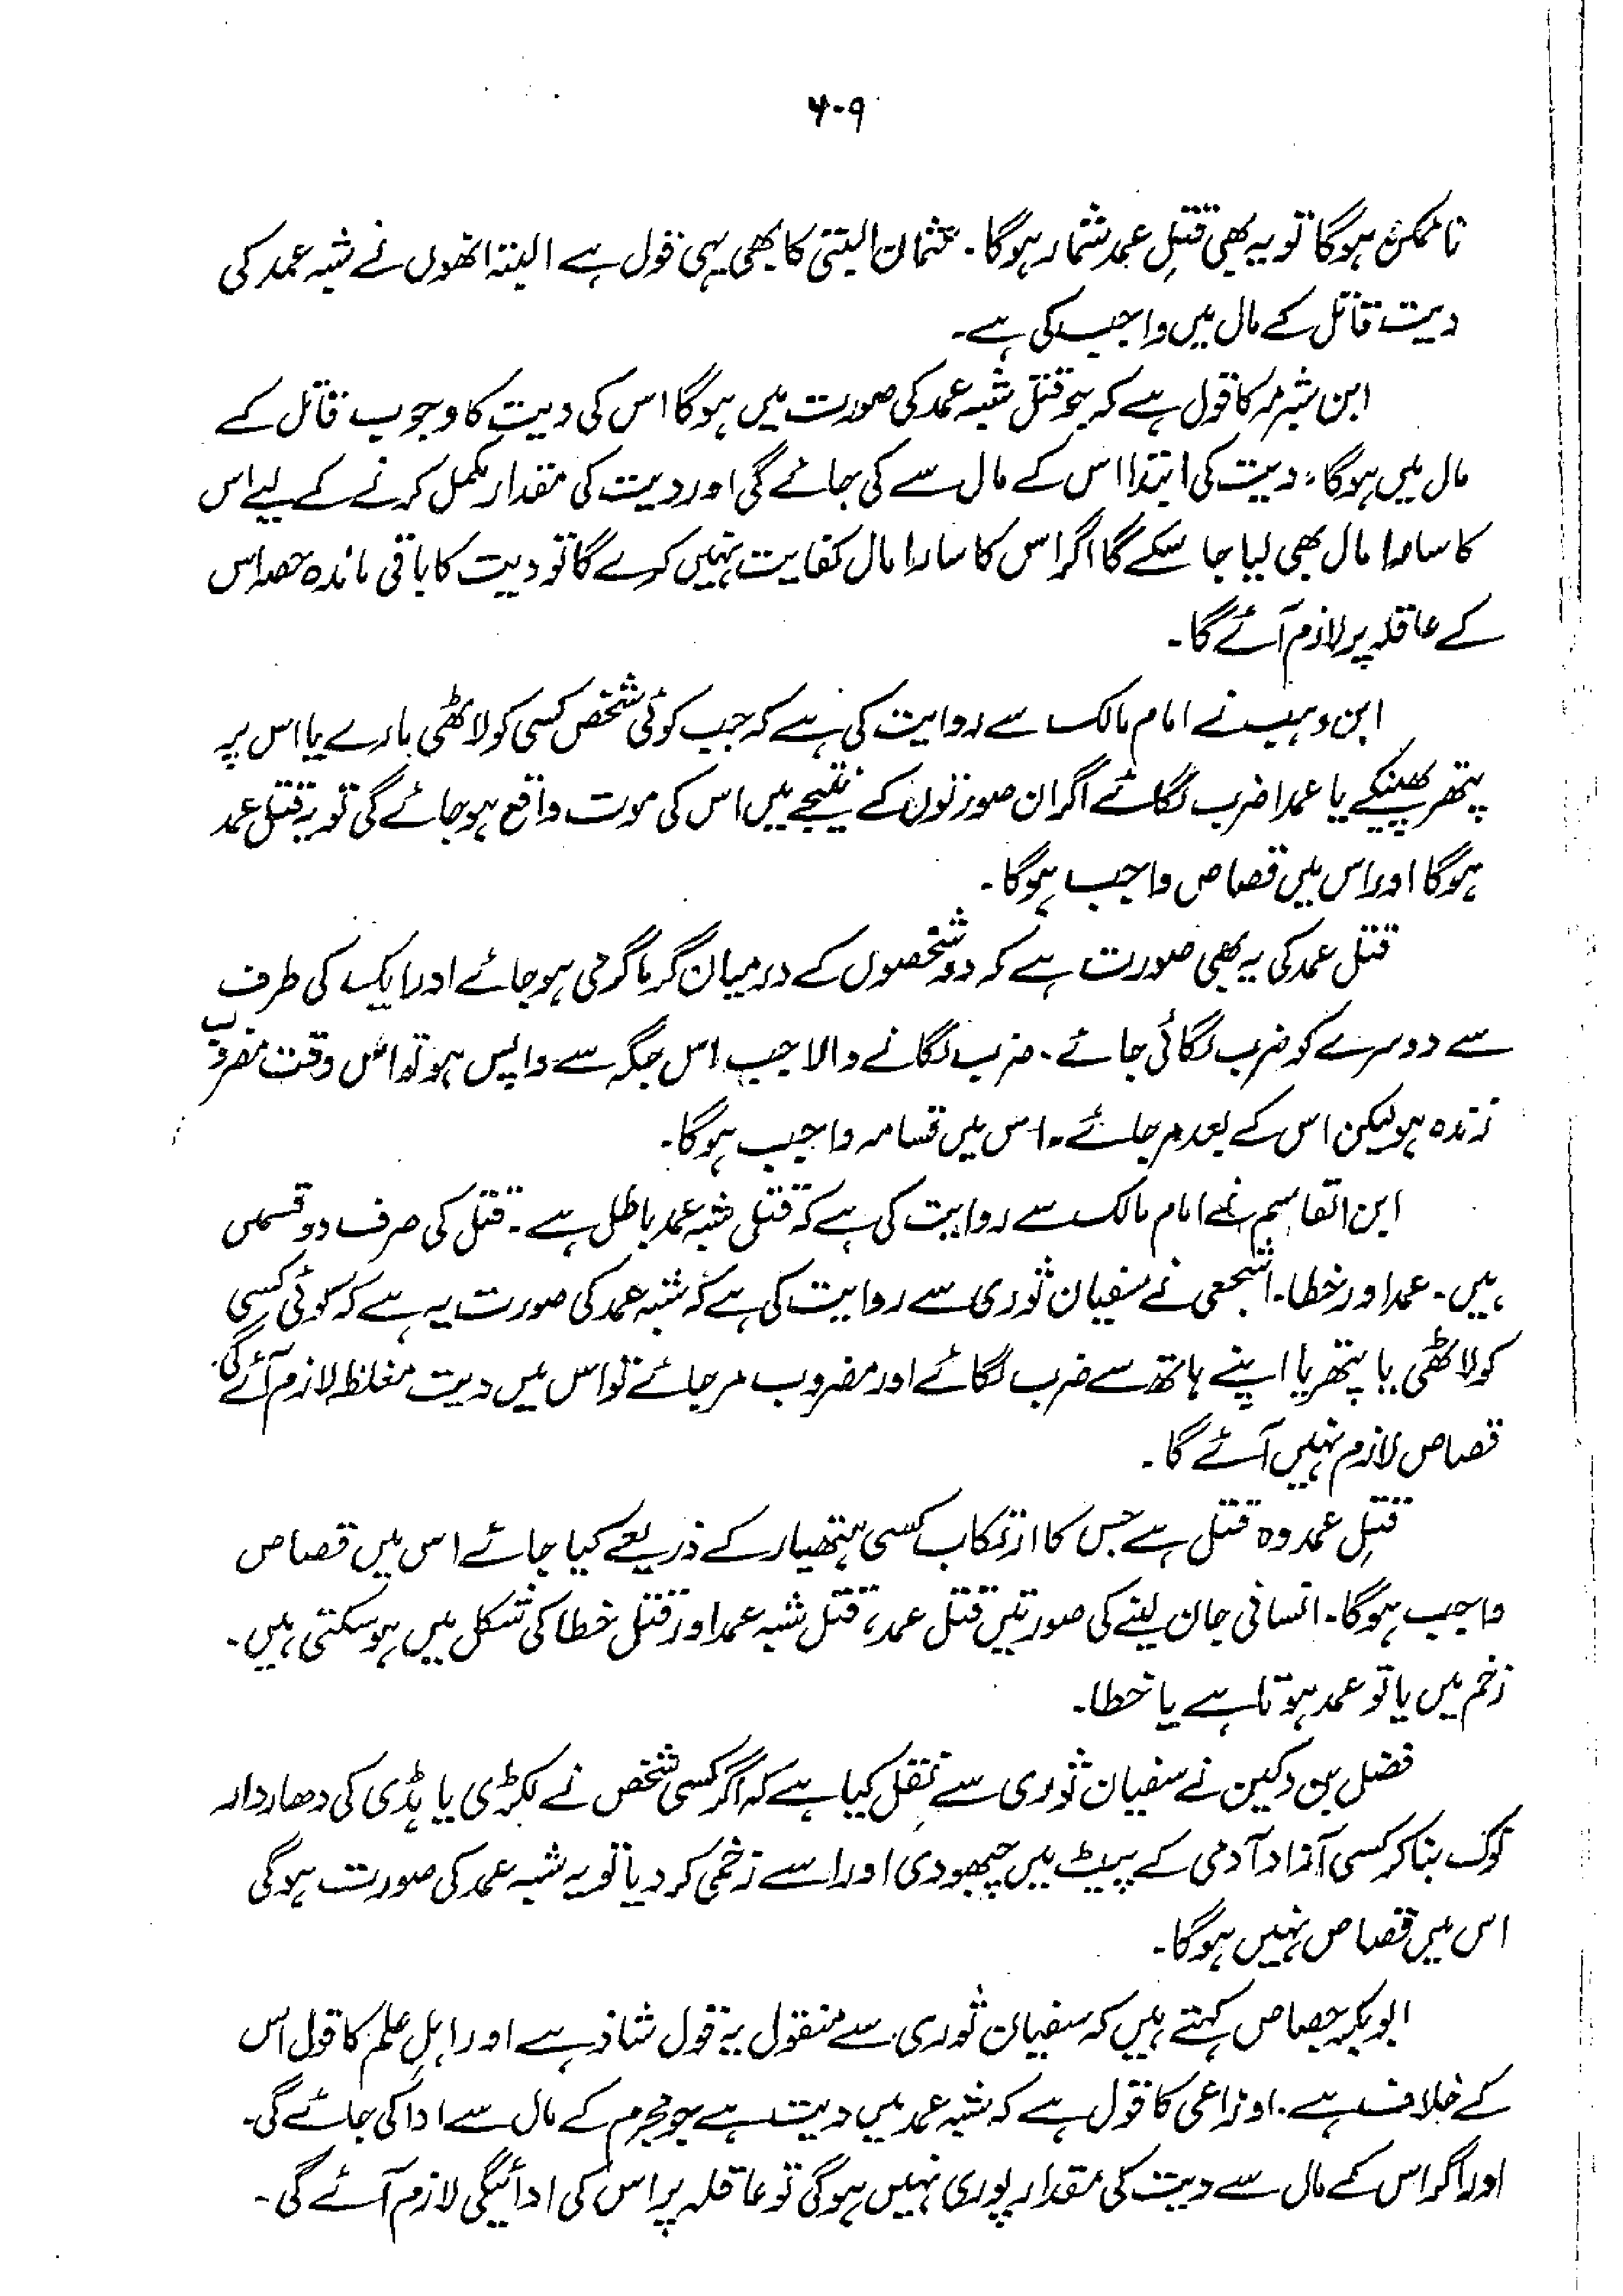 ۶۰۹
ناممکن ہوگا تو یہ بھی قتلِ عمد شمار ہوگا۔ عثمان البتی کا بھی یہی قول ہے البتہ انھوں نے شبہ عمد کی
دیت قاتل کے مال میں واجب کی ہے۔
ابن شبرمہ کا قول ہے کہ جو قتل شبہ عمد کی صورت میں ہوگا اس کی دیت کا وجوب قاتل کے
مال میں ہوگا، دیت کی ابتدا اس کے مال سے کی جائے گی اور دیت کی مقدار مکمل کرنے کے لیے اس
کا سارا مال بھی لیا جا سکے گا اگر اس کا سارا مال کفایت نہیں کرے گا تو دیت کا باقی ماندہ حصہ اس
کے عاقلہ پر لازم آئے گا۔
ابن وہب نے امام مالک سے روایت کی ہے کہ جب کوئی شخص کسی کو لاٹھی مارے یا اس پر
پتھر پھینکے یا عمداً ضرب لگائے اگر ان صورتوں کے نتیجے میں اس کی موت واقع ہو جائے گی تو یہ قتل عمد
ہوگا اور اس میں قصاص واجب ہوگا۔
قتل عمد کی یہ بھی صورت ہے کہ دو شخصوں کے درمیان گرما گرمی ہو جائے اور ایک کی طرف
سے دوسرے کو ضرب لگائی جائے۔ ضرب لگانے والا جب اس جگہ سے واپس ہو تو اس وقت مضروب
زندہ ہو لیکن اس کے بعد مر جائے۔ اس میں قسامہ واجب ہوگا۔
ابن القاسم نے امام مالک سے روایت کی ہے کہ قتل شبہ عمد باطل ہے۔ قتل کی صرف دو قسمیں
ہیں۔ عمد اور خطا۔ اشجعی نے سفیان ثوری سے روایت کی ہے کہ شبہ عمد کی صورت یہ ہے کہ کوئی کسی
کو لاٹھی یا پتھر یا اپنے ہاتھ سے ضرب لگائے اور مضروب مر جائے تو اس میں دیت مغلظہ لازم آئے گی
قصاص لازم نہیں آئے گا۔
قتلِ عمد وہ قتل ہے جس کا ارتکاب کسی ہتھیار کے ذریعے کیا جائے اس میں قصاص
واجب ہوگا۔ انسانی جان لینے کی صورتیں قتل عمد، قتل شبہ عمد اور قتل خطا کی شکل میں ہو سکتی ہیں۔
زخم میں یا تو عمد ہوتا ہے یا خطا۔
فضل بن دکین نے سفیان ثوری سے نقل کیا ہے کہ اگر کسی شخص نے لکڑی یا ہڈی کی دھاردار
نوک بنا کر کسی آزاد آدمی کے پیٹ میں چبھو دی اور اسے زخمی کر دیا تو یہ شبہ عمد کی صورت ہوگی
اس میں قصاص نہیں ہوگا۔
ابوبکر جصاص کہتے ہیں کہ سفیان ثوری سے منقول یہ قول شاذ ہے اور اہلِ علم کا قول اس
کے خلاف ہے۔ اوزاعی کا قول ہے کہ شبہ عمد میں دیت ہے جو مجرم کے مال سے ادا کی جائے گی۔
اور اگر اس کے مال سے دیت کی مقدار پوری نہیں ہوگی تو عاقلہ پر اس کی ادائیگی لازم آئے گی۔